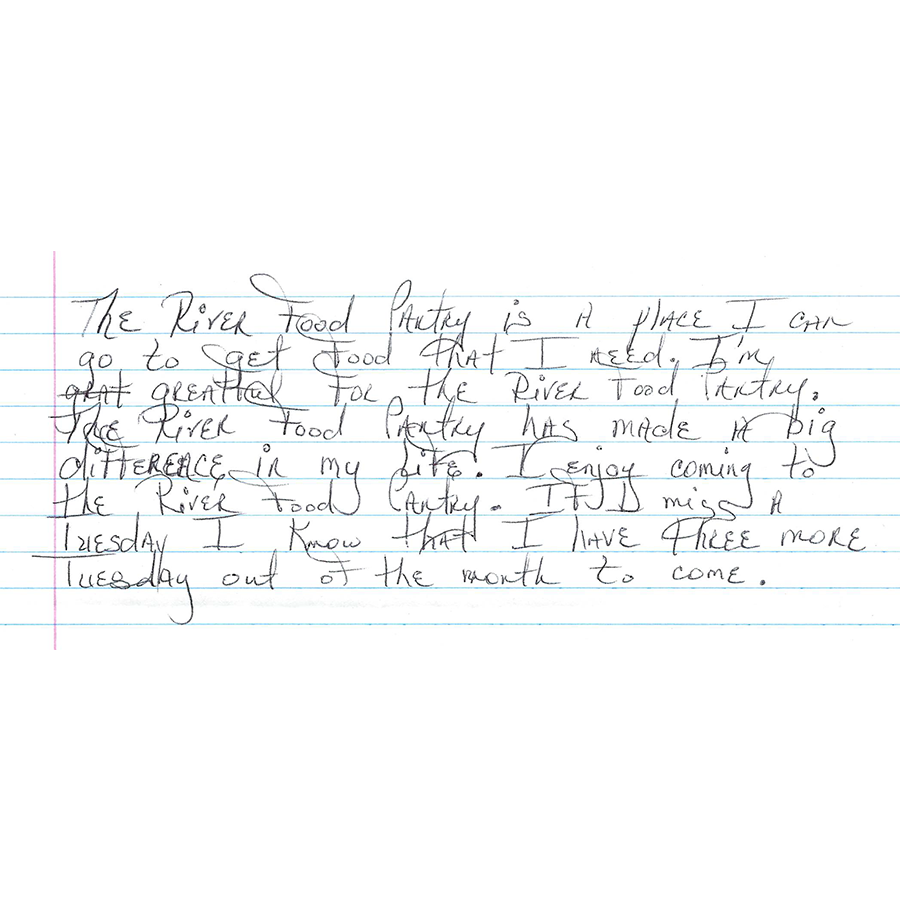 The River Food Pantry is a place I can
go to get food that I need. I'm
grat greatful for the River Food Pantry.
The River Food Pantry has made a big
difference in my life. I enjoy coming to
the River Food Pantry. If I miss a
Tuesday I know that I have three more
Tuesday out of the month to come.